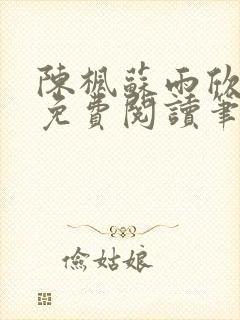 陳楓蘇雨欣
免費閱讀筆
儉姑娘